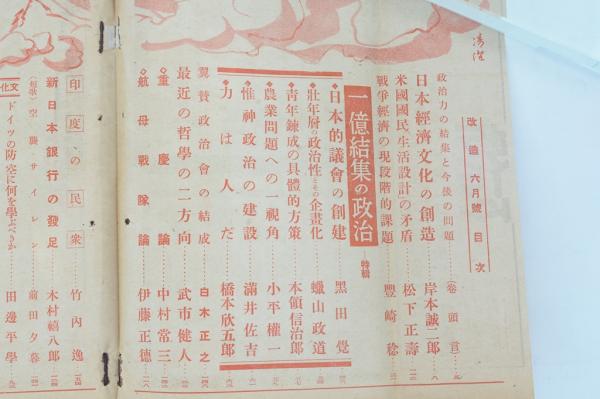 改造 六月號 目次
政治力の結集と今後の問題………(卷頭言)
日本經濟文化の創造……岸本誠二郎
米國國民「生活設計」の矛盾……松下正壽
戰爭經濟の現段階的課題……豐崎稔
一億結集の政治 特輯
◆日本的議會の創建……黑田覺
◆壯年層の政治性とその企畫化……蠟山政道
◆靑年鍊成の具體的方策……本領信治郎
◆農業問題への一視角……小平權一
◆惟神政治の建設……滿井佐吉
◆力は人だ……橋本欣五郎
翼贊政治會の結成……白木正之
最近の哲學の二方向……武市健人
◆重慶論……中村常三
◆航母戰隊論……伊藤正德
印度の民衆……竹內逸
新日本銀行の發足……木村禧八郎
(短歌)空襲サイレン……前田夕暮
文化
ドイツの防空に何を學ぶべきか……田邊平學